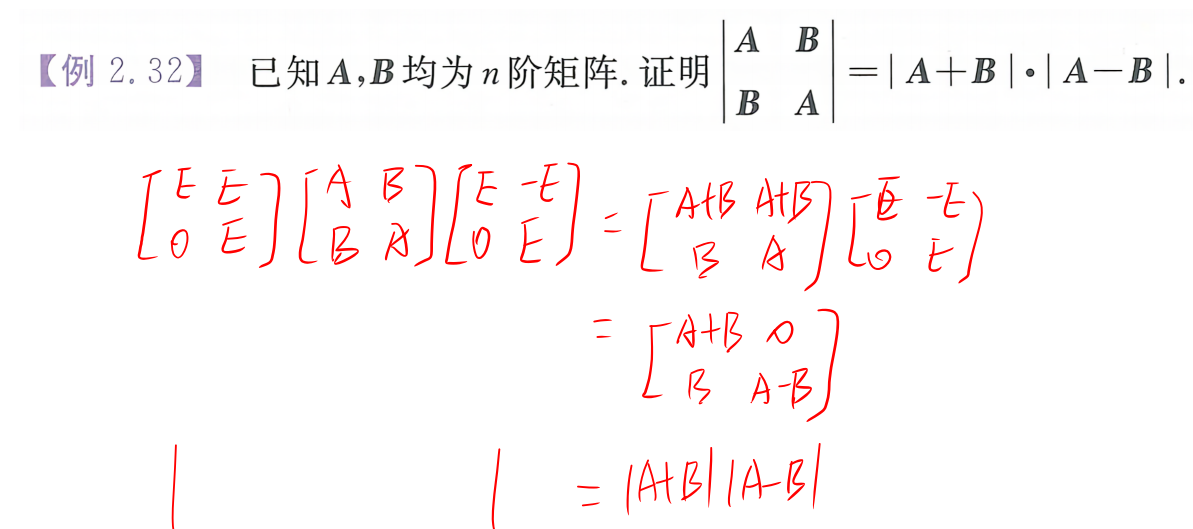 【例 2.32】 已知 A,B 均为 n 阶矩阵. 证明 |A B; B A| = |A+B|·|A−B|.
[E E; 0 E] [A B; B A] [E -E; 0 E] = [A+B A+B; B A] [E -E; 0 E]
= [A+B 0; B A-B]
| | = |A+B| |A-B|